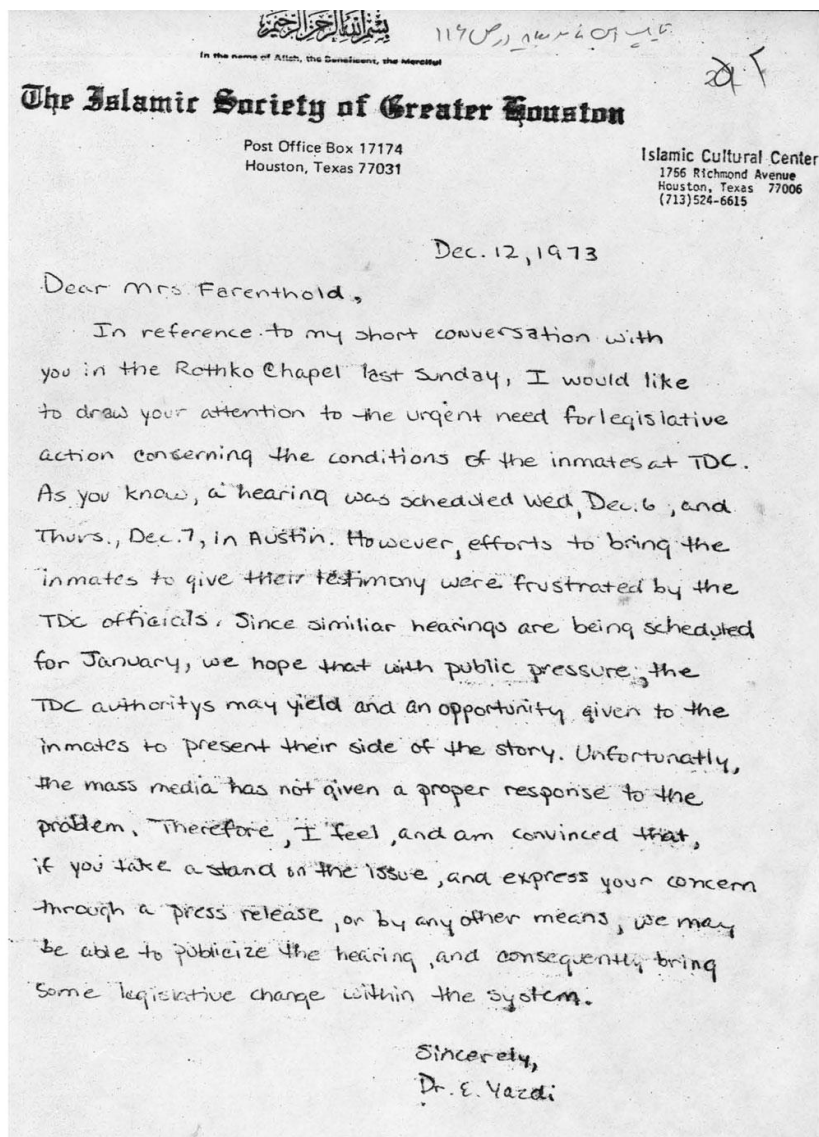 بسم الله الرحمن الرحيم
In the name of Allah, the Beneficent, the Merciful
The Islamic Society of Greater Houston
Post Office Box 17174
Houston, Texas 77031
Islamic Cultural Center
1756 Richmond Avenue
Houston, Texas 77006
(713)524-6615
Dec. 12, 1973
Dear Mrs Farenthold,
In reference to my short conversation with
you in the Rothko Chapel last Sunday, I would like
to draw your attention to the urgent need for legislative
action conserning the conditions of the inmates at TDC.
As you know, a hearing was scheduled Wed, Dec. 6, and
Thurs., Dec. 7, in Austin. However, efforts to bring the
inmates to give their testimony were frustrated by the
TDC officials. Since similiar hearings are being scheduled
for January, we hope that with public pressure, the
TDC authoritys may yield and an opportunity given to the
inmates to present their side of the story. Unfortunatly,
the mass media has not given a proper response to the
problem. Therefore, I feel, and am convinced that,
if you take a stand on the issue, and express your concern
through a press release, or by any other means, we may
be able to publicize the hearing, and consequently bring
some legislative change within the system.
Sincerely,
Dr. E. Yazdi